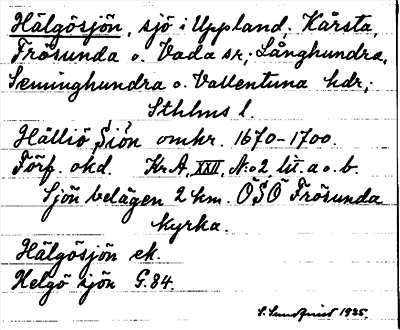 Hälgösjön, sjö i Uppland, Kårsta,
Frösunda o. Vada sr; Långhundra,
Seminghundra o. Vallentuna hdr;
Sthlms l.
Hälliö Siön omkr. 1670-1700.
Förf. okd. Kr. A. XXII, No 2 lit. a o. b.
Sjön belägen 2 km. ÖSÖ Frösunda
kyrka.
Hälgösjön ek.
Helgö sjön G.84.
S. Sundquist 1935.